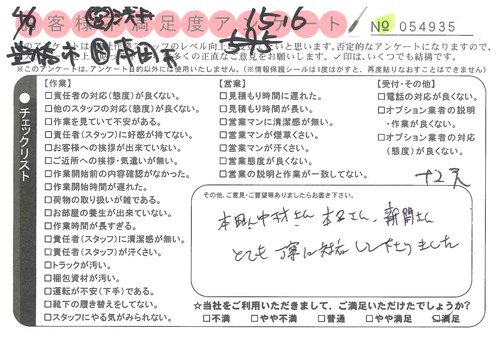 お客様満足度アンケート
№ 054935
15.16
595
4/9
豊橋市
このアンケートは
スタッフのレベル向上
と思います。否定的なアンケートになりますので、
多くの正直なご意見をお願いします。✓印は、いくつでも結構です。
※このアンケートは、アンケート目的以外には使用いたしません。(※情報保護シールは1度はがすと、再度貼りなおすことはできません)
チェックリスト
【作業】
□責任者の対応(態度)が良くない。
□他のスタッフの対応(態度)が良くない。
□作業を見ていて不安がある。
□責任者(スタッフ)に好感が持てない。
□お客様への挨拶が出来ていない。
□ご近所への挨拶・気遣いが無い。
□作業開始前の内容確認がなかった。
□作業開始時間が遅れた。
□荷物の取り扱いが雑である。
□お部屋の養生が出来ていない。
□作業時間が長すぎる。
□責任者(スタッフ)に清潔感が無い。
□責任者(スタッフ)が汗くさい。
□トラックが汚い。
□梱包資材が汚い。
□運転が不安(下手)である。
□靴下の履き替えをしてない。
□スタッフにやる気がみられない。
【営業】
□見積もり時間に遅れた。
□見積もり時間が長い。
□営業マンに清潔感が無い。
□営業マンが煙草くさい。
□営業マンが汗くさい。
□営業態度が良くない。
□営業の説明と作業が一致してない。
【受付・その他】
□電話の対応が良くない。
□オプション業者の説明
・作業が良くない。
□オプション業者の対応
(態度)が良くない。
その他、ご意見・ご要望等ありましたらお書き下さい。
中村さん
新聞さん
とても丁寧に対応して下さりました
☆当社をご利用いただきまして、ご満足いただけたでしょうか?
□不満 □やや不満 □普通 □やや満足 ☑満足